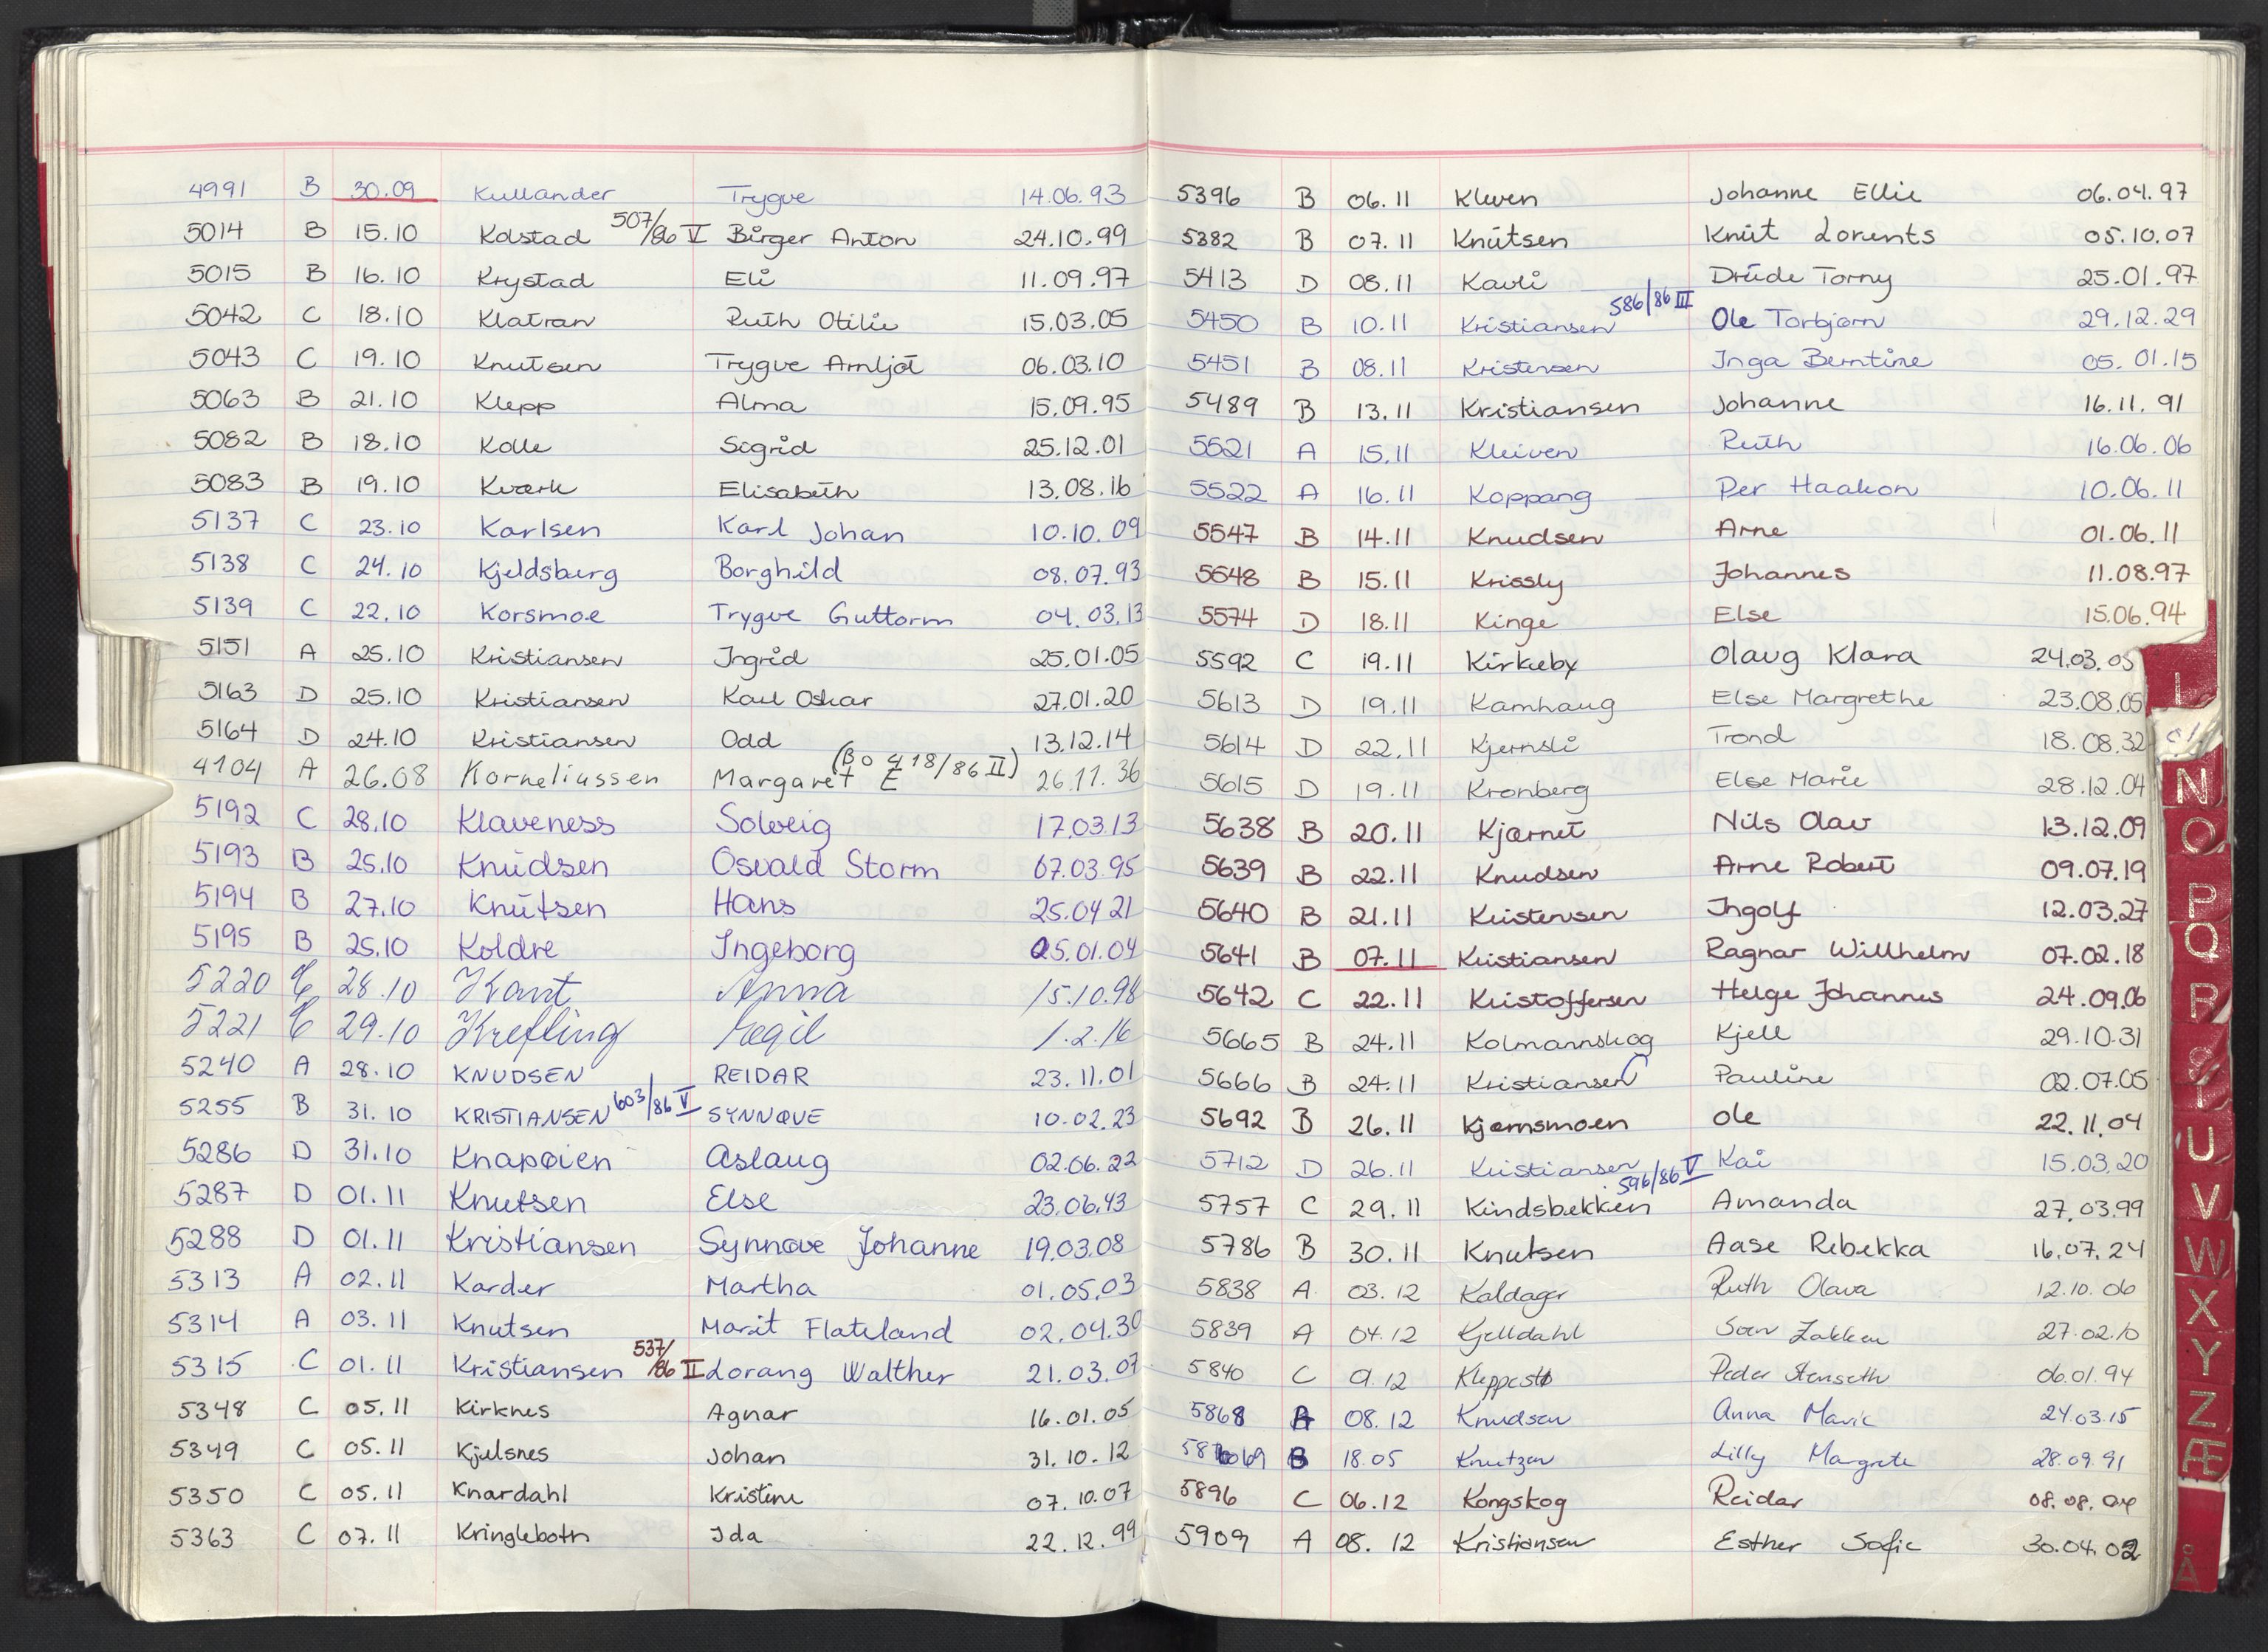 4991 B 30.09 Kullander Trygve 14.06.93
5014 B 15.10 Kolstad 507/86 V Birger Anton 24.10.99
5015 B 16.10 Krystad Eli 11.09.97
5042 C 18.10 Klatran Ruth Otilie 15.03.05
5043 C 19.10 Knutsen Trygve Arnljot 06.03.10
5063 B 21.10 Klepp Alma 15.09.95
5082 B 18.10 Kolle Sigrid 25.12.01
5083 B 19.10 Kværk Elisabeth 13.08.16
5137 C 23.10 Karlsen Karl Johan 10.10.09
5138 C 24.10 Kjeldsberg Borghild 08.07.93
5139 C 22.10 Korsmoe Trygve Guttorm 04.03.13
5151 A 25.10 Kristiansen Ingrid 25.01.05
5163 D 25.10 Kristiansen Karl Oskar 27.01.20
5164 D 24.10 Kristiansen Odd 13.12.14
4104 A 26.08 Korneliussen Margaret E (Bo 418/86 II) 26.11.36
5192 C 28.10 Klaveness Solveig 17.03.13
5193 B 25.10 Knudsen Osvald Storm 07.03.95
5194 B 27.10 Knutsen Hans 25.04 21
5195 B 25.10 Koldre Ingeborg 25.01.04
5220 C 28.10 Kant Anna 15.10.98
5221 C 29.10 Krefting Egil 1.2.16
5240 A 28.10 KNUDSEN REIDAR 23.11.01
5255 B 31.10 KRISTIANSEN 603/86 V SYNNØVE 10.02.23
5286 D 31.10 Knapøien Aslaug 02.06.22
5287 D 01.11 Knutsen Else 23.06.43
5288 D 01.11 Kristiansen Synnøve Johanne 19.03.08
5313 A 02.11 Karder Martha 01.05.03
5314 A 03.11 Knutsen Marit Flateland 02.04.30
5315 C 01.11 Kristiansen 537/86 II Lorang Walther 21.03.07
5348 C 05.11 Kirknes Agnar 16.01.05
5349 C 05.11 Kjelsnes Johan 31.10.12
5350 C 05.11 Knardahl Kristine 07.10.07
5363 C 07.11 Kringlebotn Ida 22.12.99
5396 B 06.11 Kleven Johanne Ellie 06.04.97
5382 B 07.11 Knutsen Knut Lorents 05.10.07
5413 D 08.11 Kavli Drude Torny 25.01.97
5450 B 10.11 Kristiansen 586/86 III Ole Torbjørn 29.12.29
5451 B 08.11 Kristensen Inga Berntine 05.01.15
5489 B 13.11 Kristiansen Johanne 16.11.91
5521 A 15.11 Kleiven Ruth 16.06.06
5522 A 16.11 Koppang Per Haakon 10.06.11
5547 B 14.11 Knudsen Arne 01.06.11
5548 B 15.11 Krissly Johannes 11.08.97
5574 D 18.11 Kinge Else 15.06.94
5592 C 19.11 Kirkeby Olaug Klara 24.03.05
5613 D 19.11 Kamhaug Else Margrethe 23.08.05
5614 D 22.11 Kjernsli Trond 18.08.32
5615 D 19.11 Kronberg Else Marie 28.12.04
5638 B 20.11 Kjærnet Nils Olav 13.12.09
5639 B 22.11 Knudsen Arne Robert 09.07.19
5640 B 21.11 Kristensen Ingolf 12.03.27
5641 B 07.11 Kristiansen Ragnar Willhelm 07.02.18
5642 C 22.11 Kristoffersen Helge Johannes 24.09.06
5665 B 24.11 Kolmannskog Kjell 29.10.31
5666 B 24.11 Kristiansen Pauline 02.07.05
5692 B 26.11 Kjernsmoen Ole 22.11.04
5712 D 26.11 Kristiansen Kai 15.03.20
5757 C 29.11 Kindsbekken 596/86 V Amanda 27.03.99
5786 B 30.11 Knutsen Aase Rebekka 16.07.24
5838 A 03.12 Kaldager Ruth Olava 12.10.06
5839 A 04.12 Kjelldahl 27.02.10
5840 C 9.12 Kleppestø Peder Stenseth 06.01.94
5868 A 08.12 Knudsen Anna Marie 24.03.15
B 18.05 Knutzen Lilly Margrete 28.09.91
5896 C 06.12 Kongskog Reidar 08.08.04
5909 A 08.12 Kristiansen Esther Sofie 30.04.02
L
N
O
P
Q
R
S
T
U
V
W
X
Y
Z
Æ
Å